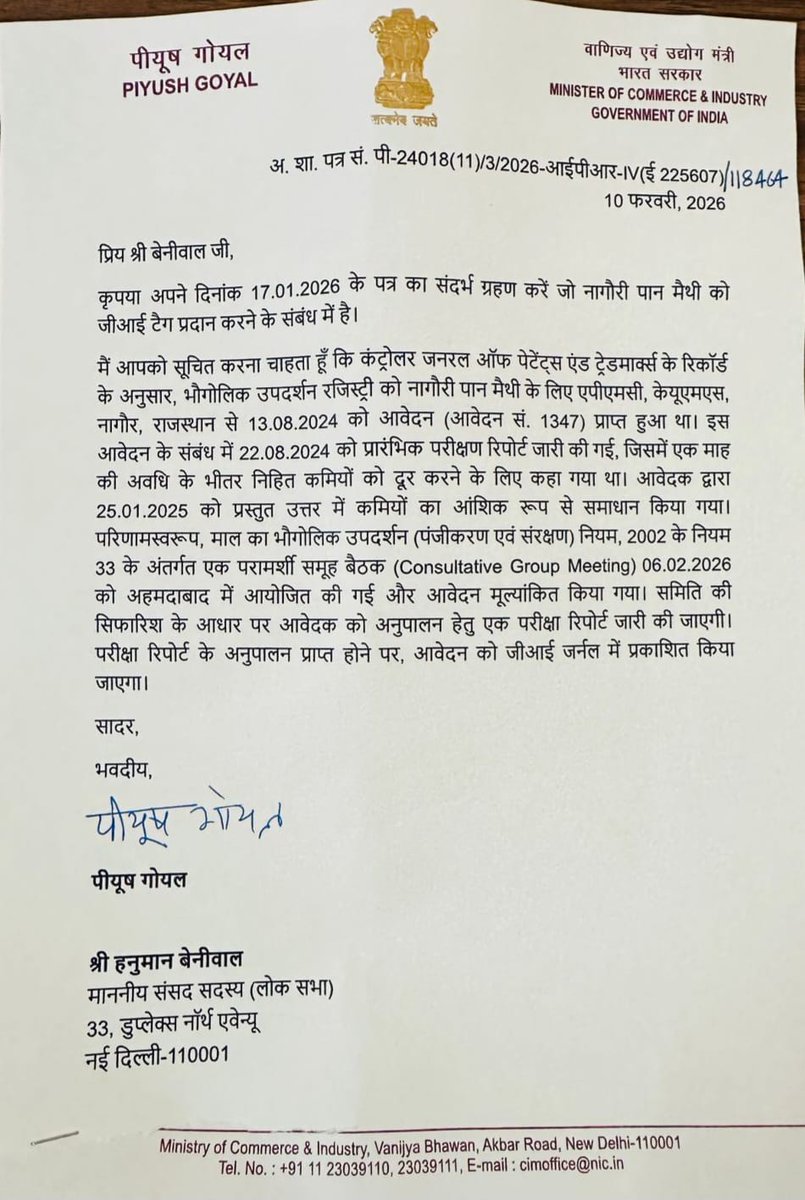 पीयूष गोयल
PIYUSH GOYAL
सत्यमेव जयते
वाणिज्य एवं उद्योग मंत्री
भारत सरकार
MINISTER OF COMMERCE & INDUSTRY
GOVERNMENT OF INDIA
अ. शा. पत्र सं. पी-24018(11)/3/2026-आईपीआर-IV(ई 225607)/118464
10 फरवरी, 2026
प्रिय श्री बेनीवाल जी,
कृपया अपने दिनांक 17.01.2026 के पत्र का संदर्भ ग्रहण करें जो नागौरी पान मैथी को
जीआई टैग प्रदान करने के संबंध में है।
मैं आपको सूचित करना चाहता हूँ कि कंट्रोलर जनरल ऑफ पेटेंट्स एंड ट्रेडमार्क्स के रिकॉर्ड
के अनुसार, भौगोलिक उपदर्शन रजिस्ट्री को नागौरी पान मैथी के लिए एपीएमसी, केयूएमएस,
नागौर, राजस्थान से 13.08.2024 को आवेदन (आवेदन सं. 1347) प्राप्त हुआ था। इस
आवेदन के संबंध में 22.08.2024 को प्रारंभिक परीक्षण रिपोर्ट जारी की गई, जिसमें एक माह
की अवधि के भीतर निहित कमियों को दूर करने के लिए कहा गया था। आवेदक द्वारा
25.01.2025 को प्रस्तुत उत्तर में कमियों का आंशिक रूप से समाधान किया गया।
परिणामस्वरूप, माल का भौगोलिक उपदर्शन (पंजीकरण एवं संरक्षण) नियम, 2002 के नियम
33 के अंतर्गत एक परामर्शी समूह बैठक (Consultative Group Meeting) 06.02.2026
को अहमदाबाद में आयोजित की गई और आवेदन मूल्यांकित किया गया। समिति की
सिफारिश के आधार पर आवेदक को अनुपालन हेतु एक परीक्षा रिपोर्ट जारी की जाएगी।
परीक्षा रिपोर्ट के अनुपालन प्राप्त होने पर, आवेदन को जीआई जर्नल में प्रकाशित किया
जाएगा।
सादर,
भवदीय,
पीयूष गोयल
पीयूष गोयल
श्री हनुमान बेनीवाल
माननीय संसद सदस्य (लोक सभा)
33, डुप्लेक्स नॉर्थ एवेन्यू
नई दिल्ली-110001
Ministry of Commerce & Industry, Vanijya Bhawan, Akbar Road, New Delhi-110001
Tel. No. : +91 11 23039110, 23039111, E-mail : cimoffice@nic.in